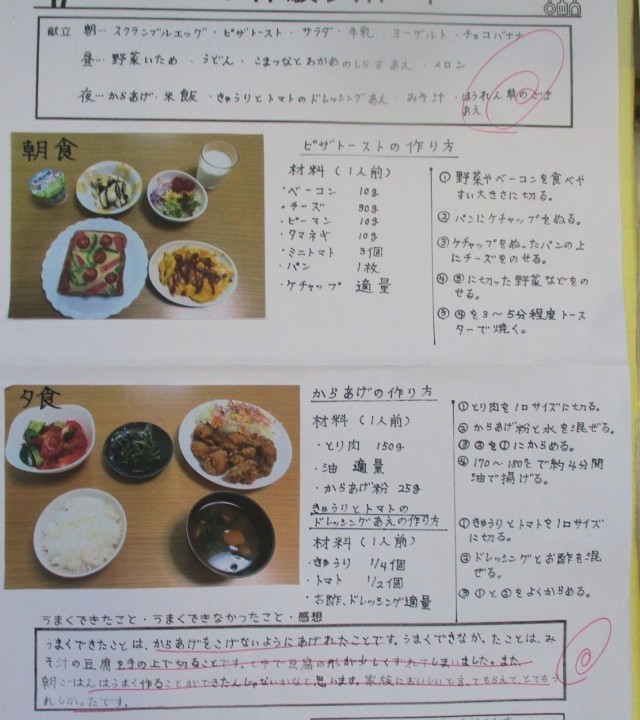 献立 朝… スクランブルエッグ ・ ピザトースト ・ サラダ ・ 牛乳 ・ ヨーグルト ・ チョコバナナ
昼… 野菜いため ・ うどん ・ こまつなとわかめのしらすあえ ・ メロン
夜… からあげ ・ 米飯 ・ きゅうりとトマトのドレッシングあえ ・ みそ汁 ・ ほうれん草のごまあえ
朝食
ピザトーストの作り方
材料(1人前)
・ベーコン 10g
・チーズ 30g
・ピーマン 10g
・タマネギ 10g
・ミニトマト 3個
・パン 1枚
・ケチャップ 適量
① 野菜やベーコンを食べや
すい大きさに切る。
② パンにケチャップをぬる。
③ ケチャップをぬったパンの上
にチーズをのせる。
④ ③に切った野菜などをの
せる。
⑤ ④を3〜5分程度トース
ターで焼く。
夕食
からあげの作り方
材料(1人前)
・とり肉 150g
・油 適量
・からあげ粉 25g
①とり肉を1口サイズに切る。
②からあげ粉と水を混ぜる。
③②を①にからめる。
④170〜180℃で約4分間
油で揚げる。
きゅうりとトマトの
ドレッシングあえの作り方
材料(1人前)
・きゅうり 1/4個
・トマト 1/2個
・お酢、ドレッシング 適量
①きゅうりとトマトを1口サイズ
に切る。
②ドレッシングとお酢を混
ぜる。
③①と②をよくからめる。
うまくできたこと・うまくできなかったこと・感想
うまくできたことは、からあげをこげないようにあげれたことです。うまくできなかったことは、み
そ汁の豆腐を手の上で切ることです。とちゅうで豆腐の形が少しくずれてしまいました。また、
朝ごはんはうまく作ることができたんじゃないかなと思います。家族においしいと言ってもらえてとてもう
れしかったです。